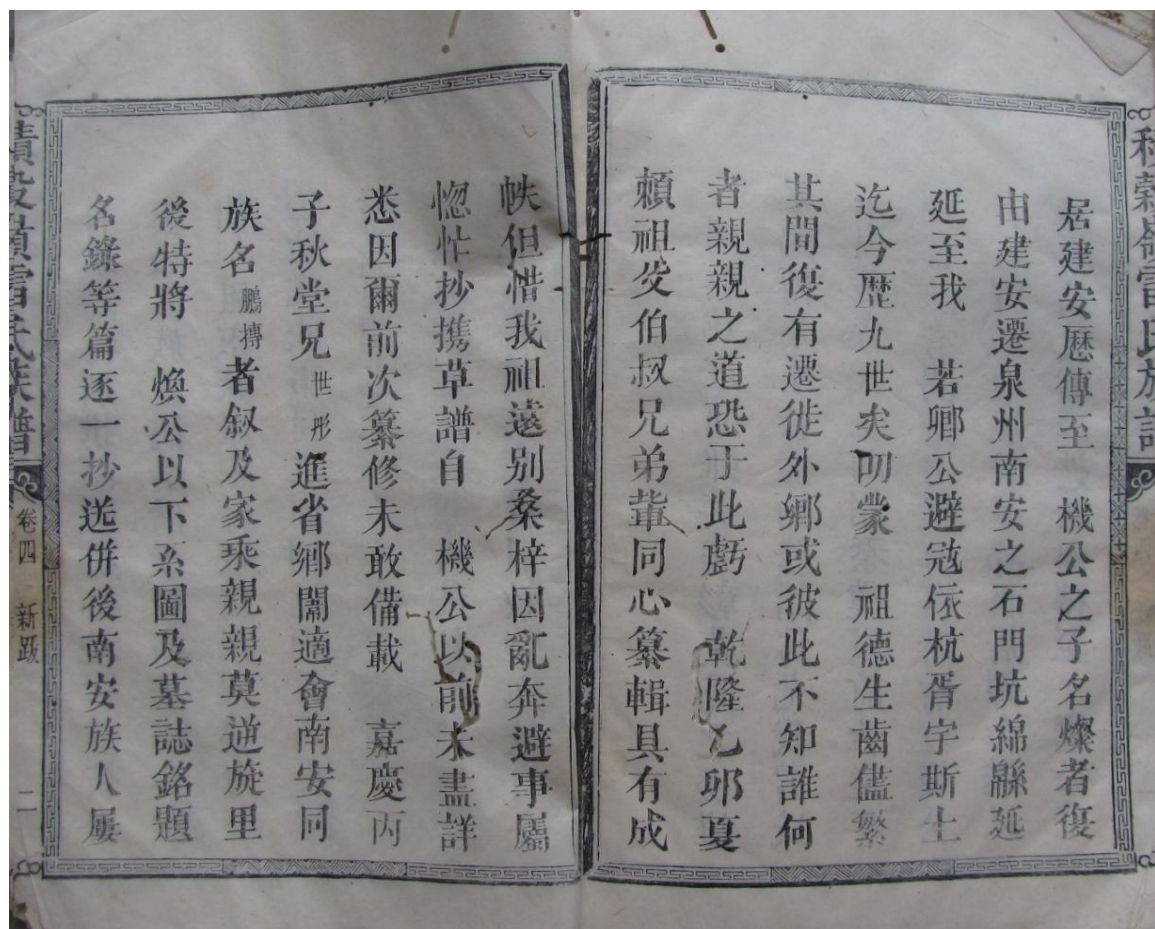 居建安厯傳至　機公之子名燦者復
由建安遷泉州南安之石門坑綿緜延
延至我　若鄉公避冦依杭胥宇斯土
迄今歴九世矣叨蒙　祖德生齒儘繁
其間復有遷徙外鄉或彼此不知誰何
者親親之道恐于此虧　乾隆乙夘夏
頼祖父伯叔兄弟軰同心纂輯具有成
帙但惜我祖遠别桑梓因亂奔避事屬
惚忙抄携草譜自　機公以前未盡詳
悉因爾前次纂修未敢備載　嘉慶丙
子秋堂兄世彤進省鄉闈適會南安同
族名鵬摶者叙及家乘親親莫逆旋里
後特將　煥公以下系圖及墓誌銘題
名錄等篇逐一抄送併後南安族人屢
積穀嶺雷氏族譜
卷四　新跋
二